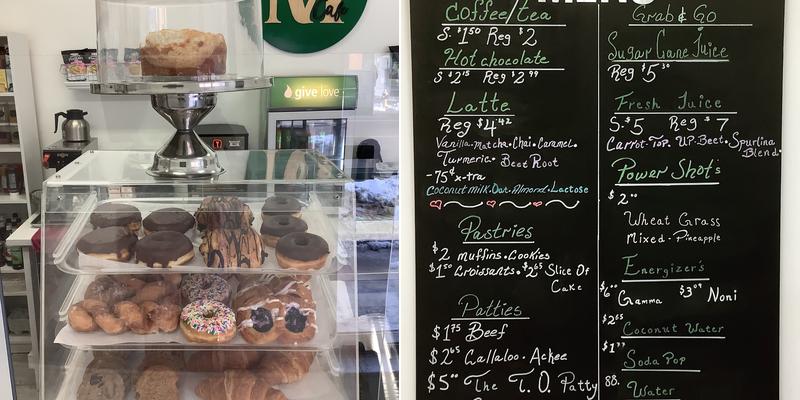 Cafe
give love
MENU
Coffee/tea
S. $1⁵⁰ Reg $2
Hot chocolate
S $2¹⁵ Reg $2⁹⁹
Latte
Reg $4⁴²
Vanilla.Matcha.Chai.Caramel.
Turmeric. Beet Root
-75¢ x-tra
Coconut milk.Oat.Almond.Lactose
Pastries
$2 muffins.Cookies
$1⁵⁰ Croissants.$2⁶⁵ Slice Of
Cake
Patties
$1⁷⁵ Beef
$2⁶⁵ Callaloo. Ackee
$5⁰⁰ The T.O. Patty
Grab & Go
Sugar Cane Juice
Reg $5⁵⁰
Fresh Juice
S.$5 Reg $7
Carrot-Top. UP-Beet. Spurlina
Blend.
Power Shot's
$2⁰⁰
Wheat Grass
Mixed-Pineapple
Energizer's
Gamma $3⁰⁹ Noni
$2⁶⁵ Coconut Water
Soda Pop
88. Water